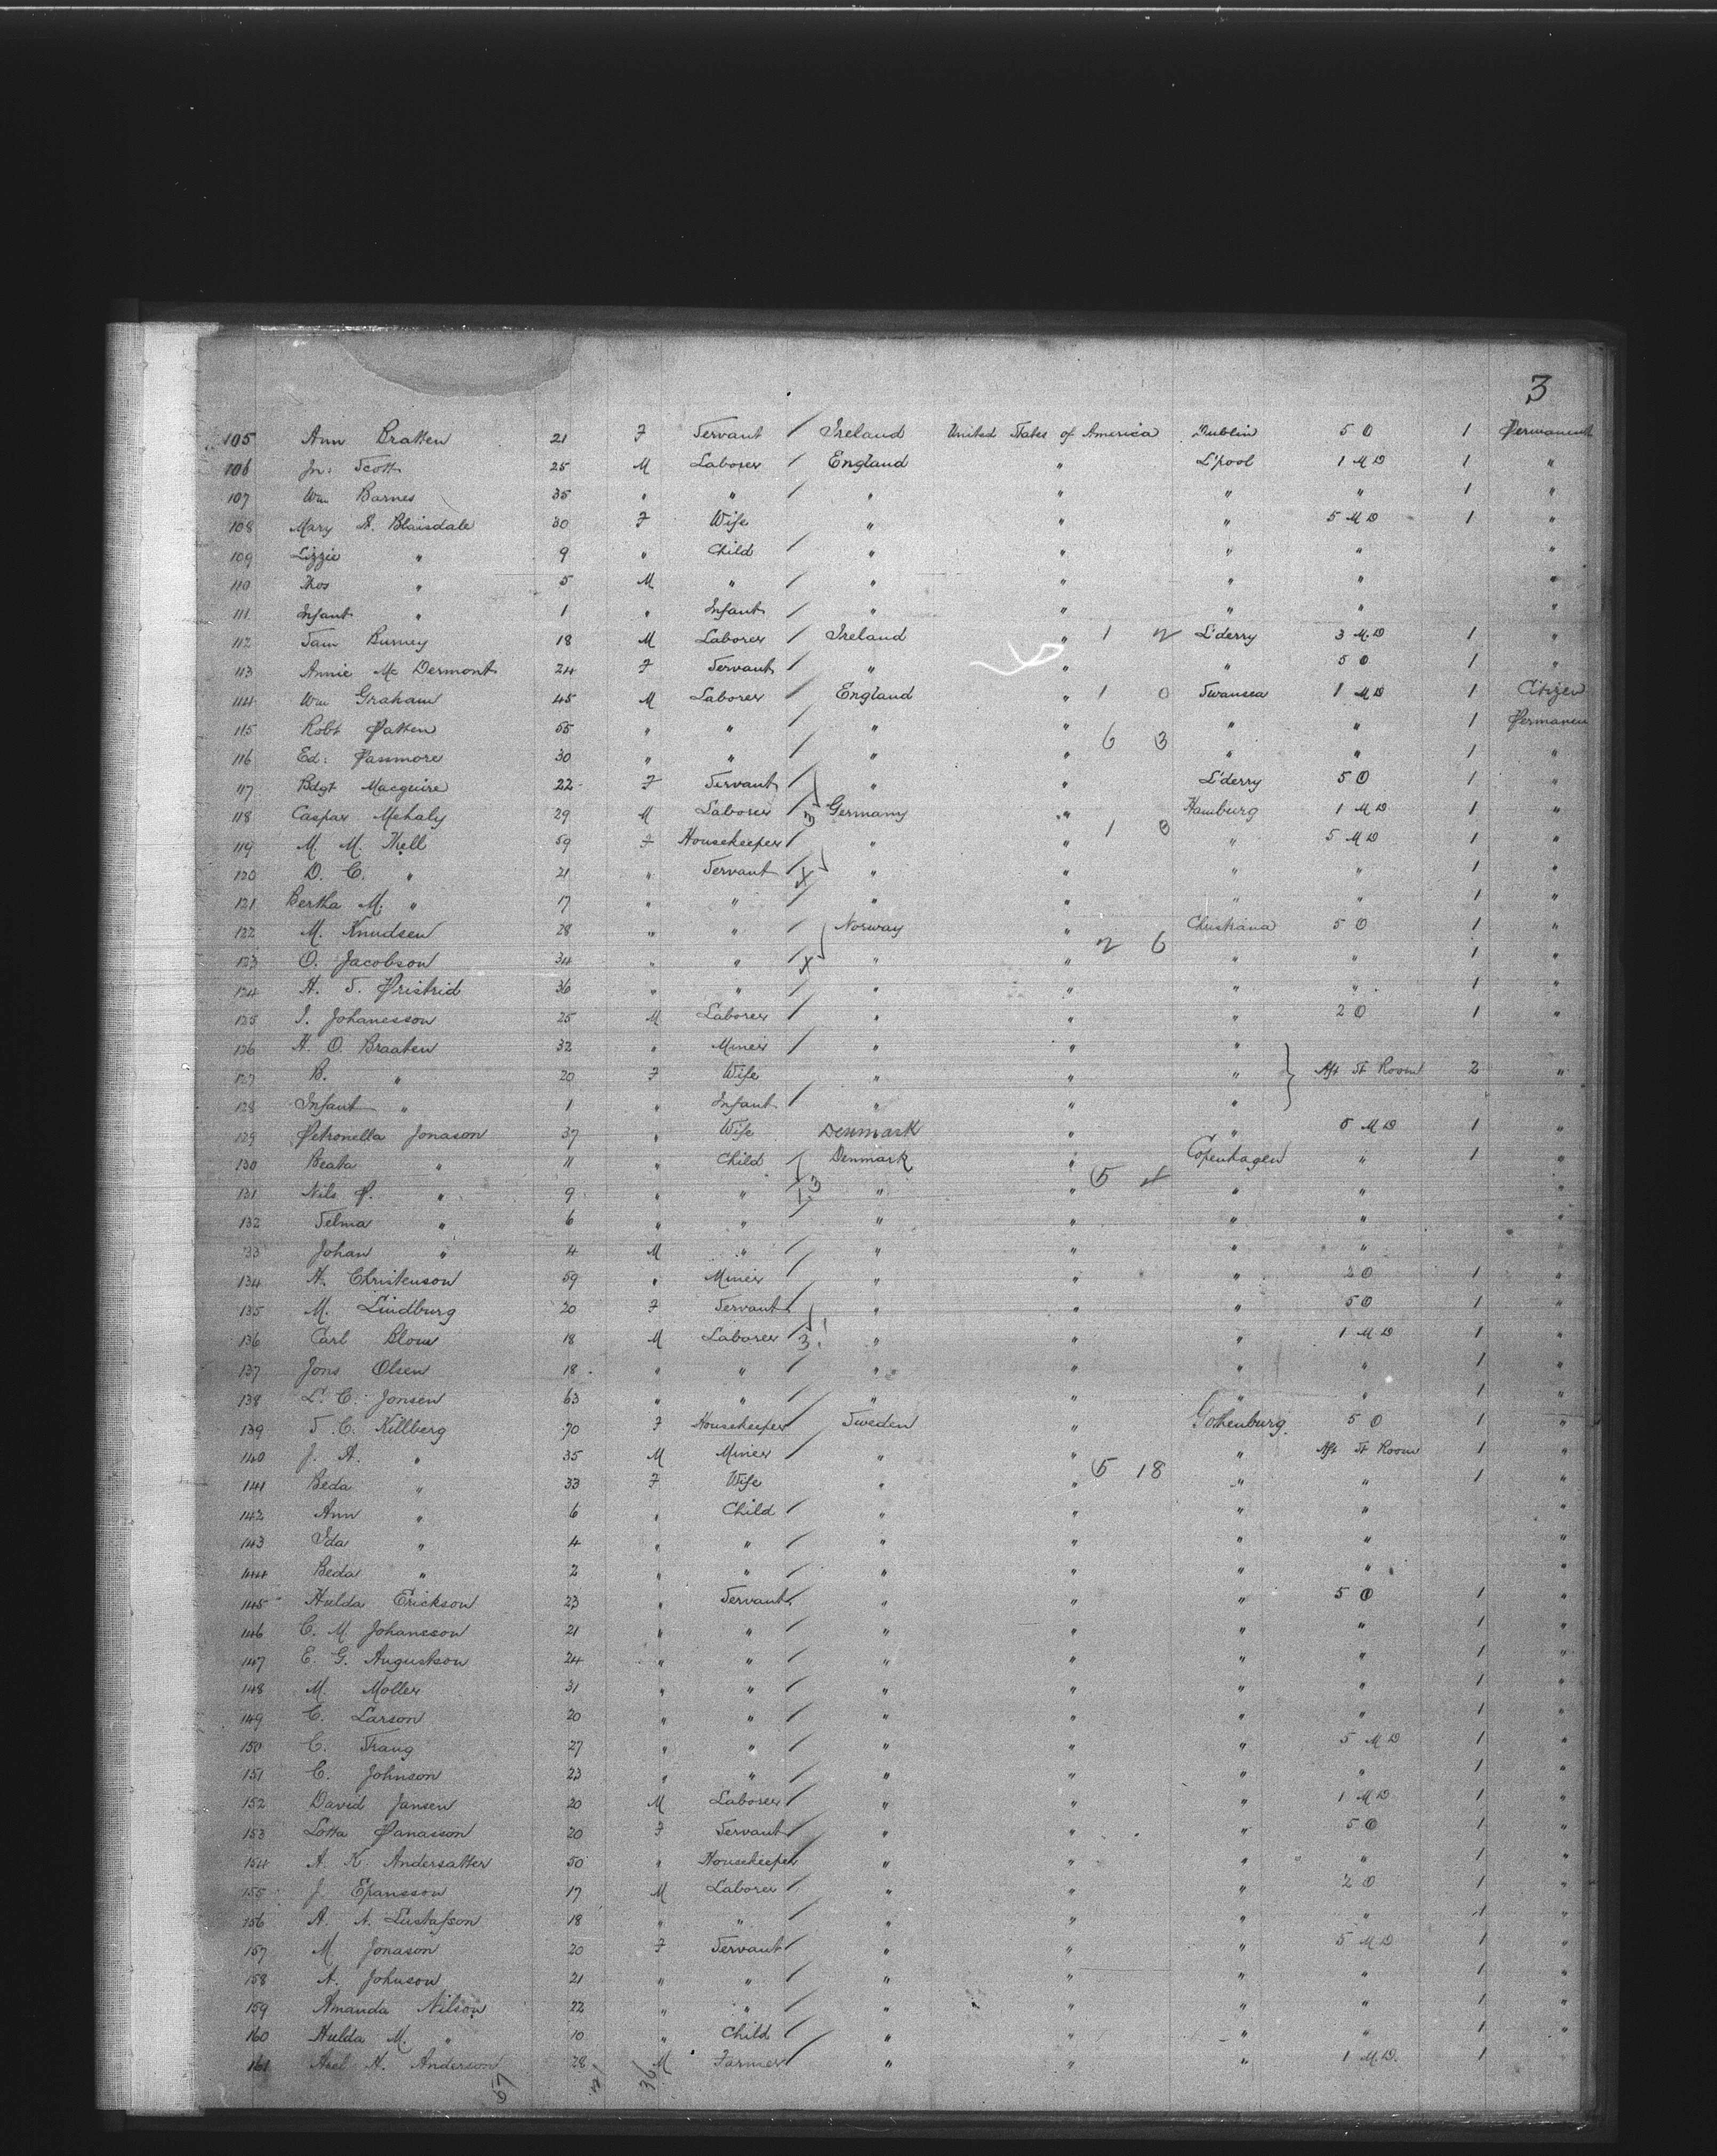 3
105 Ann Bratten 21 F Servant / Ireland United States of America Dublin 5 O 1 Permanent
106 Jn: Scott 25 M Laborer / England " L'pool 1 M D 1 "
107 Wm Barnes 35 " " / " " " " 1 "
108 Mary A. Blaisdale 30 F Wife " " " 5 M D 1 "
109 Lizzie " 9 " Child / " " " " "
110 Thos " 5 M " / " " " " "
111 Infant " 1 " Infant / " " " " "
112 Sam Burney 18 M Laborer / Ireland " 1 2 L'derry 3 M. D 1 "
113 Annie Mc Dermont 24 F Servant / " " " 5 O 1 "
114 Wm Graham 45 M Laborer / England " 1 0 Swansea 1 M D 1 Citizen
115 Robt Patten 55 " " / " " 6 3 " " 1 Permanen
116 Ed: Panmore 30 " " / " " " " 1 "
117 Bdgt Macguire 22 F Servant / " " L'derry 5 O 1 "
118 Caspar Mehaly 29 M Laborer / 3 Germany " Hamburg 1 M D 1 "
119 M. M. Thell 59 F Housekeeper / " " 1 3 " 5 M D 1 "
120 D. C. " 21 " Servant X " " " " 1 "
121 Bertha M. " 17 " " / " " " " 1 "
122 M. Knudsen 28 " " / Norway " Christiana 5 O 1 "
123 O. Jacobson 34 " " X " " 2 6 " " 1 "
124 H. S. 36 " " / " " " " 1 "
125 J. Johanesson 25 M Laborer / " " " 2 O 1 "
126 H. O. Braaten 32 " Miner / " " "
127 B. " 20 F Wife " " " Aft St Room 2 "
128 Infant " 1 " Infant / " " "
129 Petronella Jonason 37 " Wife Denmark " " 5 M D 1 "
130 Beata " 11 " Child / Denmark " Copenhagen " 1 "
131 Nils P. " 9 " " / 3 " " 5 4 " " "
132 Selma " 6 " " / " " " " "
133 Johan " 4 M " / " " " " "
134 H. Christenson 59 " Miner / " " " 2 O 1 "
135 M. Lindburg 20 F Servant " " " 5 O 1 "
136 Carl Blom 18 M Laborer / 3 " " " 1 M D 1 "
137 Jons Olsen 18 " " / " " " " 1 "
138 L. C. Jonsen 63 " " / " " " " 1 "
139 S. C. Killberg 70 F Housekeeper / Sweden " Gothenburg 5 O 1 "
140 J. A. " 35 M Miner / " " " Aft St Room 1 "
141 Beda " 33 F Wife " " 5 18 " " 1 "
142 Ann " 6 " Child / " " " " "
143 Ida " 4 " " / " " " " "
144 Beda " 2 " " / " " " " "
145 Hulda Erickson 23 " Servant / " " " 5 O 1 "
146 C. M. Johansson 21 " " / " " " " 1 "
147 E. G. Augustson 24 " " / " " " " 1 "
148 M Moller 31 " " / " " " " 1 "
149 C. Larson 20 " " / " " " " 1 "
150 C. Trang 27 " " / " " " 5 M D 1 "
151 C. Johnson 23 " " / " " " " 1 "
152 David Jansen 20 M Laborer / " " " 1 M D 1 "
153 Lotta Panasson 20 F Servant / " " " 5 O 1 "
154 A. K. Andersatter 50 " Housekeeper / " " " " 1 "
155 J. Epansson 17 M Laborer / " " " 2 O 1 "
156 A. A. Gustafson 18 " " / " " " " 1 "
157 M. Jonason 20 F Servant / " " " 5 M D 1 "
158 A. Johnson 21 " " / " " " " 1 "
159 Amanda Nilson 22 " " / " " " " 1 "
160 Hulda M. " 10 " Child / " " " " 1 "
161 Axel A. Anderson 28 M Farmer / " " " 1 M.D. 1 "